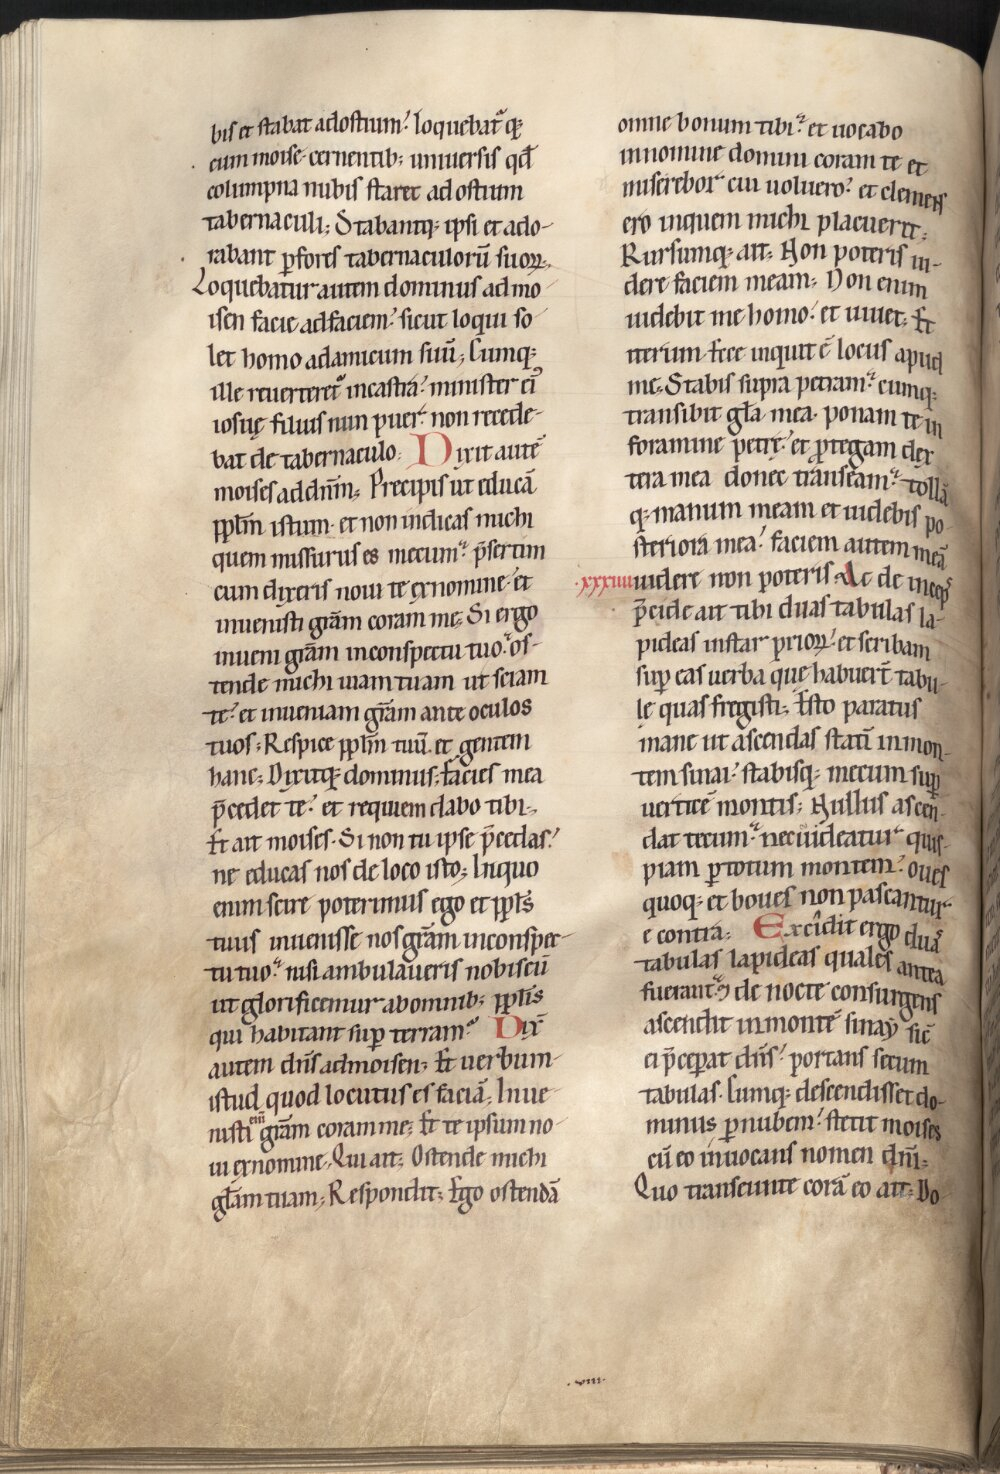 bis et stabat ad ostium. loquebat᷑ q;
cum moise. cernentib; uniuersis qđ
columpna nubis staret ad ostium
tabernaculi; Stabantq; ipsi et ado-
rabant p̱ fores tabernaculorū suoꝝ;
Loquebatur autem dominus ad mo
isen facie ad faciem. sicut loqui so
let homo ad amicum suū; Cumq;
ille reuerteret᷑ in castra. minister eiꝰ
iosuę filius nun puer. non recede-
bat de tabernaculo; Dixit autē
moises ad dn̄m; Precipis ut educā
pp̄lm istum. et non indicas michi
quem missurus es mecum. p̄sertim
cum dixeris noui te ex nomine. et
inuenisti gr̄am coram me; Si ergo
inueni gr̄am in conspectu tuo. os-
tende michi uiam tuam ut sciam
te. et inueniam gr̄am ante oculos
tuos; Respice pp̄lm tuū. et gentem
hanc; Dixitq; dominus; facies mea
p̄cedet te. et requiem dabo tibi;
Et ait moises. Si non tu ipse p̄cedas.
ne educas nos de loco isto; In quo
enim scire poterimus ego et pp̄ls
tuus inuenisse nos gr̄am in conspec-
tu tuo. nisi ambulaueris nobiscū
ut glorificemur ab omnib; pp̄lis
qui habitant sup̱ terram. Dix̄
autem dn̄s ad moisen; Et uerbum
istud quod locutus es faciā; Inue
nisti em̄ gr̄am coram me; Et te ipsum no-
ui ex nomine. Qui ait; Ostende michi
gl̄am tuam; Respondit; Ego ostendā
omne bonum tibi. et uocabo
in nomine domini coram te et
miserebor cui uoluero. et clemens
ero in quem michi placuerit;
Rursumq; ait; Non poteris ui-
dere faciem meam; Non enim
uidebit me homo. et uiuet; Et
iterum. Ecce inquit ē locus apud
me; Stabis supra petram. cumq;
transibit gl̄a mea. ponam te in
foramine petrę. et p̱tegam dex
tera mea donec transeam. tollā
q; manum meam et uidebis po-
steriora mea. faciem autem meā
.xxxiiii. uidere non poteris. Ac deincepˢ
p̄cide ait tibi duas tabulas la-
pideas instar prioꝝ. et scribam
sup̱ eas uerba que habuer̄t tabu-
lę quas fregisti; Esto paratus
mane ut ascendas statī in mon-
tem sinai. stabisq; mecum sup̱
uerticē montis; Nullus ascen-
dat tecum. nec uideatur quis-
piam p̱ totum montem. Oues
quoq; et boues non pascantur
e contra; Excidit ergo duaˢ
tabulas lapideas quales antea
fuerant. ⁊ de nocte consurgens
ascendit in montē sinay sic̄
ei p̄cep̱at dn̄s. portans secum
tabulas. Cumq; descendisset do-
minus p̱ nubem. stetit moises
cū eo inuocans nomen dn̄i;
Quo transeunte corā eo ait; Do
.viii.